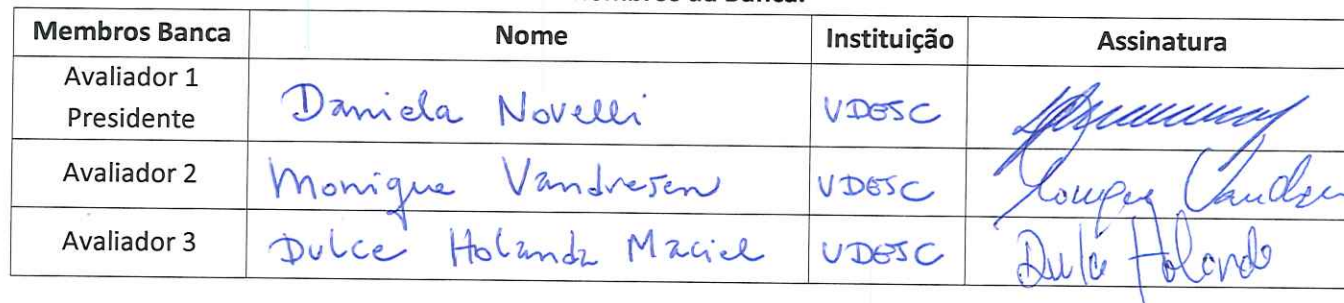 Membros da Banca:
Membros Banca Nome Instituição Assinatura
Avaliador 1
Presidente Daniela Novelli UDESC
Avaliador 2 Monique Vandresen UDESC
Avaliador 3 Dulce Holanda Maciel UDESC Dulce Holanda